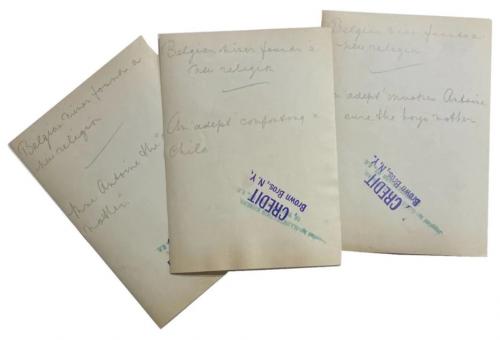 Belgian miner founds a
new religion
Père Antoine the
mother
Belgian miner founds a
new religion
An adept comforting a
child
CREDIT
Brown Bros, N.Y.
Belgian miner founds a
new religion
An adept Antoine
cure the boys mother
CREDIT
Brown Bros, N.Y.